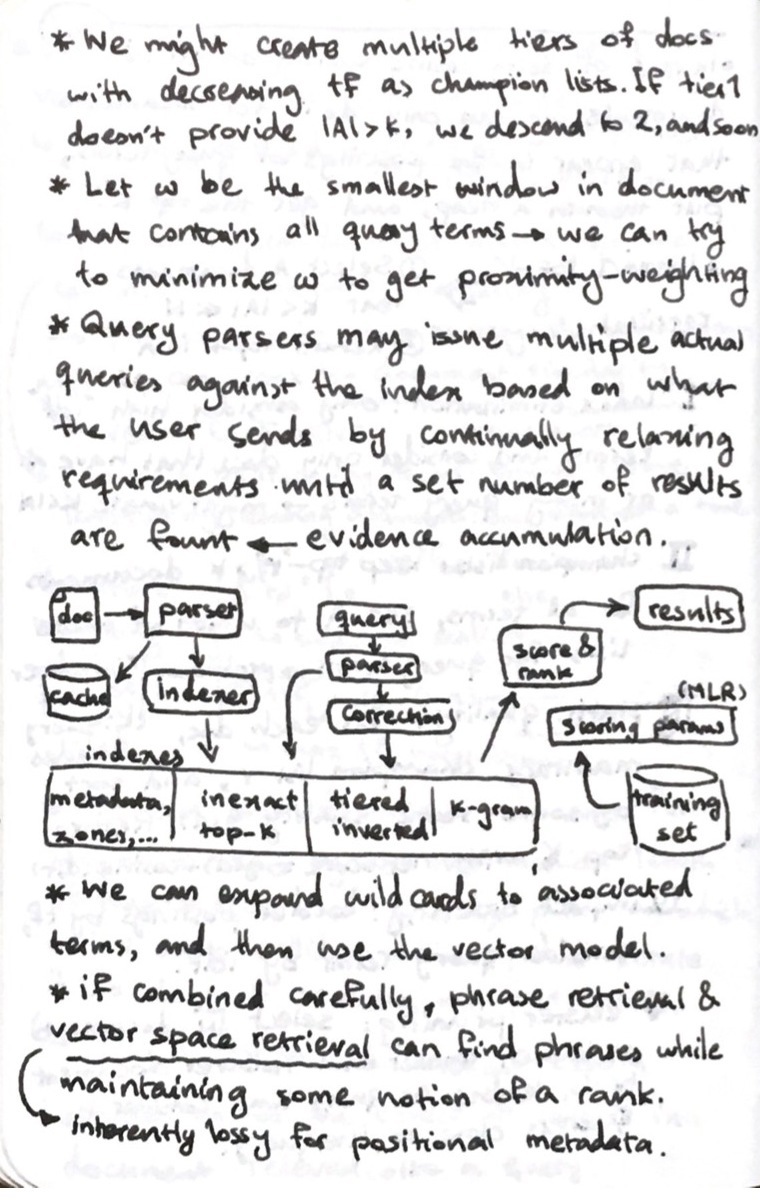 * We might create multiple tiers of docs
with decreasing tf as champion lists. If tier 1
doesn't provide |A|>k, we descend to 2, and soon
* Let w be the smallest window in document
that contains all query terms → we can try
to minimize w to get proximity-weighting
* Query parsers may issue multiple actual
queries against the index based on what
the user sends by continually relaxing
requirements until a set number of results
are fount ← evidence accumulation.
doc → parser
cache
indexer
query
parser
correction
score &
rank
results
(MLR)
scoring params
training
set
indexes
metadata,
zones,...
inexact
top-k
tiered
inverted
k-gram
* We can expand wild cards to associated
terms, and then use the vector model.
* if combined carefully, phrase retrieval &
vector space retrieval can find phrases while
maintaining some notion of a rank.
inherently lossy for positional metadata.